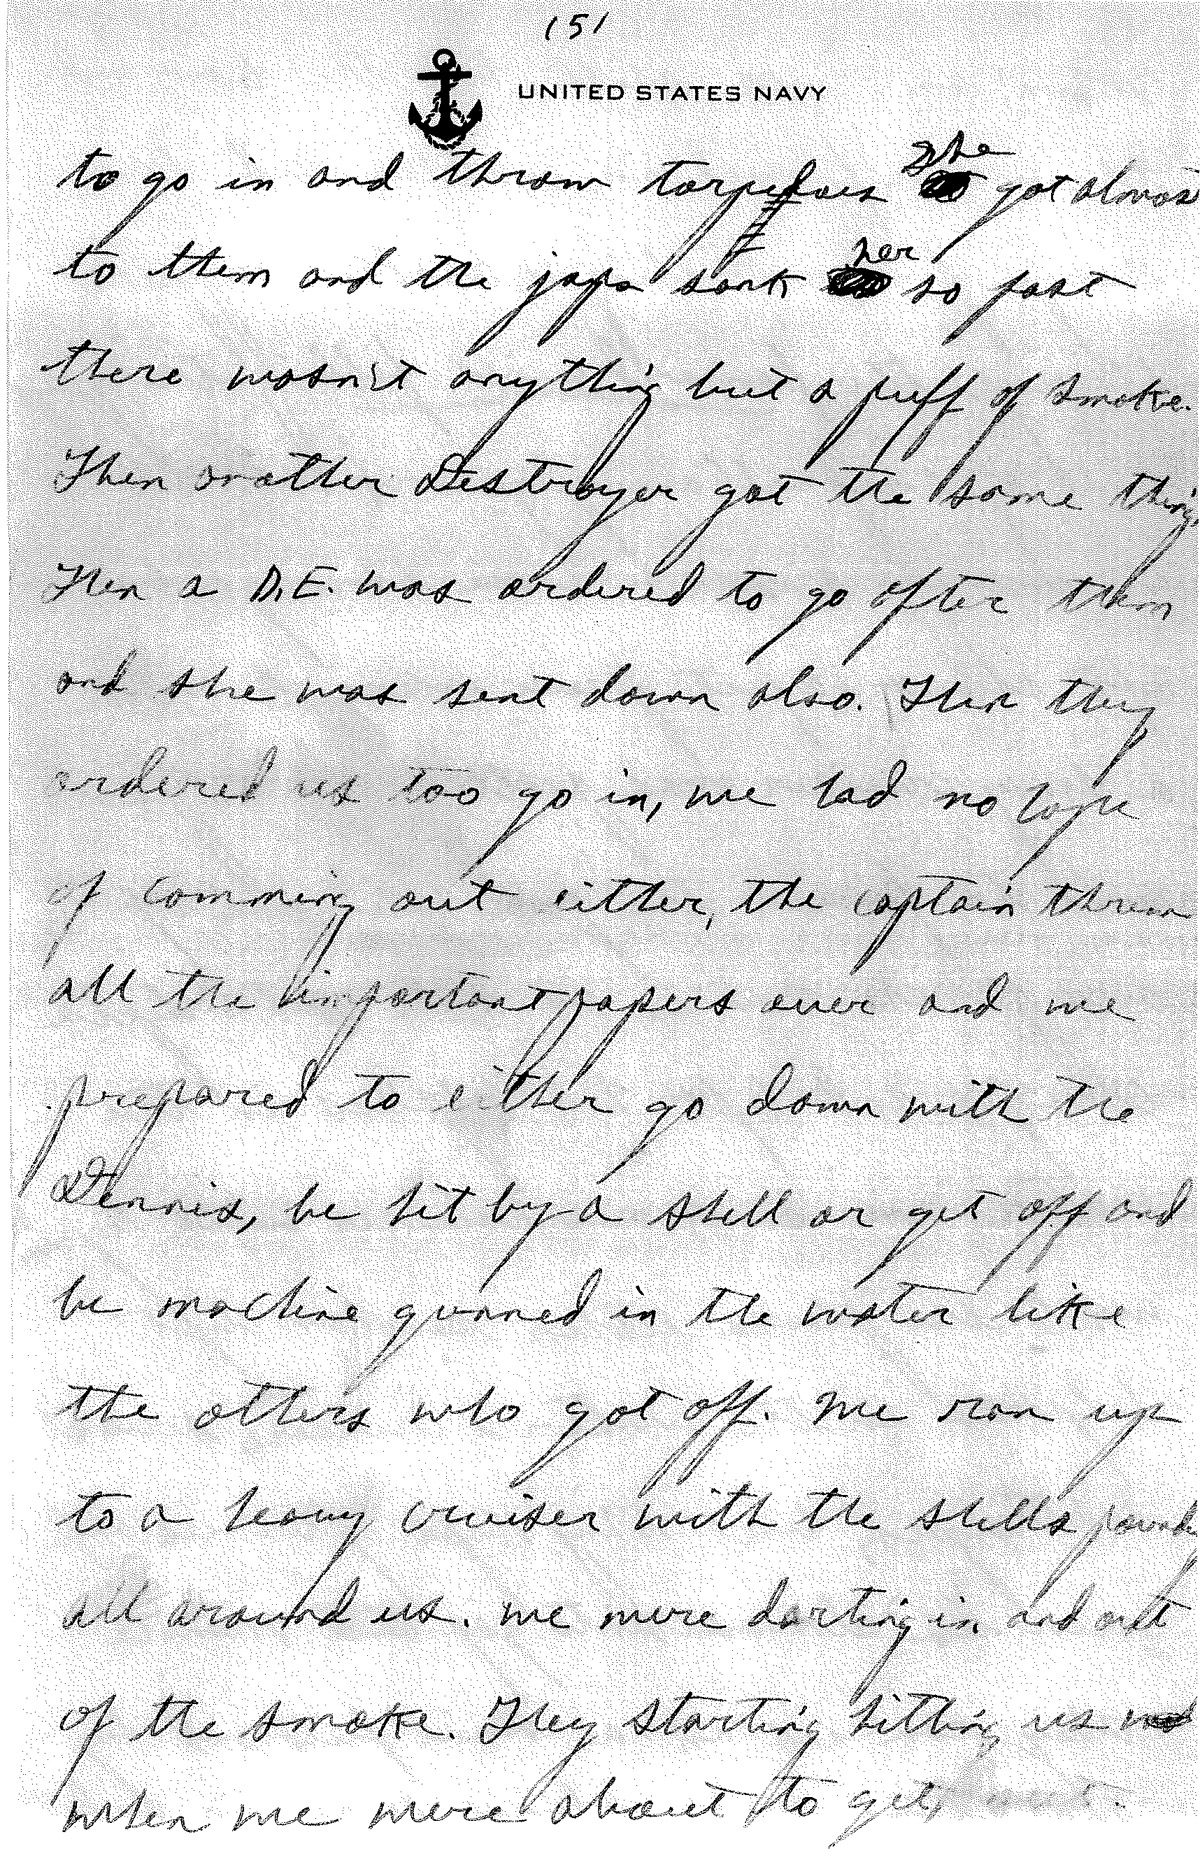 (5)
UNITED STATES NAVY
to go in and throw torpedoes she got almost
to them and the japs sank her so fast
there wasn't anything but a puff of smoke.
Then another destroyer got the same thing,
Then a D.E. was ordered to go after them
and she was sent down also. Then they
ordered us too go in, we had no hope
of comming out either, the captain threw
all the important papers over and we
prepared to either go down with the
Dennis, be hit by a shell or get off and
be machine gunned in the water like
the others who got off. We ran up
to a heavy cruiser with the shells
all around us. we were darting in and out
of the smoke. They starting hitting us
when we were about to get, out.